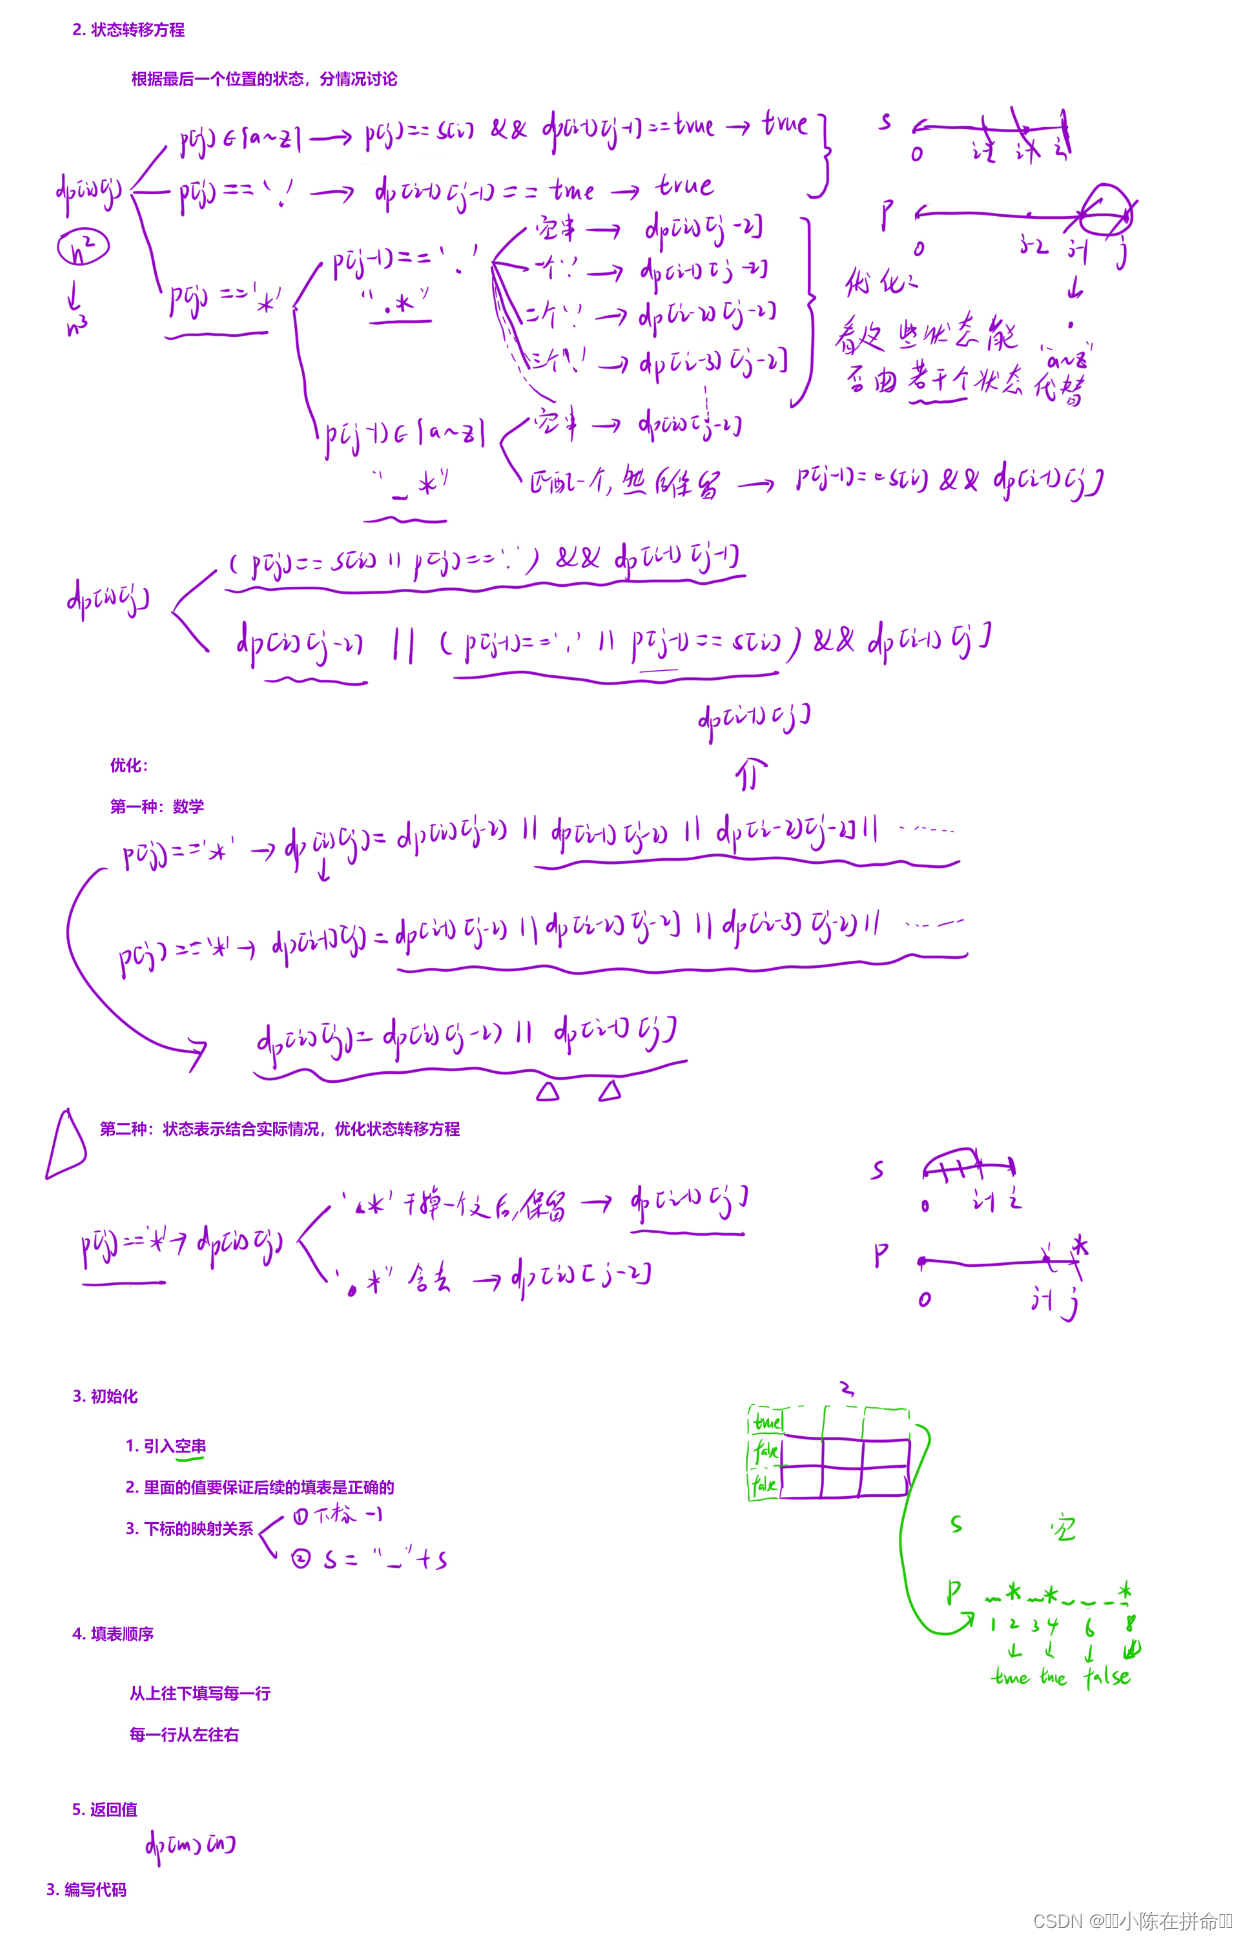 2. 状态转移方程
根据最后一个位置的状态，分情况讨论
p[j]∈[a~z] → p[j]==s[i] && dp[i-1][j-1]==true → true
dp[i][j]
p[j]=='.' → dp[i-1][j-1]==true → true
n²
↓
n³
p[j]=='*'
p[j-1]=='.'
".*"
空串 → dp[i][j-2]
一个'.' → dp[i-1][j-2]
二个'.' → dp[i-2][j-2]
三个'.' → dp[i-3][j-2]
p[j-1]∈[a~z]
"_*"
空串 → dp[i][j-2]
匹配一个, 然后保留 → p[j-1]==s[i] && dp[i-1][j]
s
0 i-2 i-1 i
p
0 i-2 j-1 j
↓
.
"a~z"
优化:
看这些状态能
否由若干个状态代替
dp[i][j]
(p[j]==s[i] || p[j]=='.') && dp[i-1][j-1]
dp[i][j-2] || (p[j-1]=='.' || p[j-1]==s[i]) && dp[i-1][j]
dp[i-1][j]
⇑
优化：
第一种：数学
p[j]=='*' → dp[i][j]=dp[i][j-2] || dp[i-1][j-2] || dp[i-2][j-2] || ......
p[j]=='*' → dp[i-1][j]=dp[i-1][j-2] || dp[i-2][j-2] || dp[i-3][j-2] || ......
dp[i][j]=dp[i][j-2] || dp[i-1][j]
第二种：状态表示结合实际情况，优化状态转移方程
p[j]=='*' → dp[i][j]
".*" 干掉一个之后,保留 → dp[i-1][j]
".*" 舍去 → dp[i][j-2]
s
0 i-1 i
p *
0 j-1 j
3. 初始化
1. 引入空串
2. 里面的值要保证后续的填表是正确的
3. 下标的映射关系
① 下标 -1
② s = "_"+s
2,
true
false
false
s 空
p _*_*___*
1 2 3 4 6 8
↓ ↓ ↓ ↓
true true false
4. 填表顺序
从上往下填写每一行
每一行从左往右
5. 返回值
dp[m][n]
3. 编写代码
CSDN @小陈在拼命